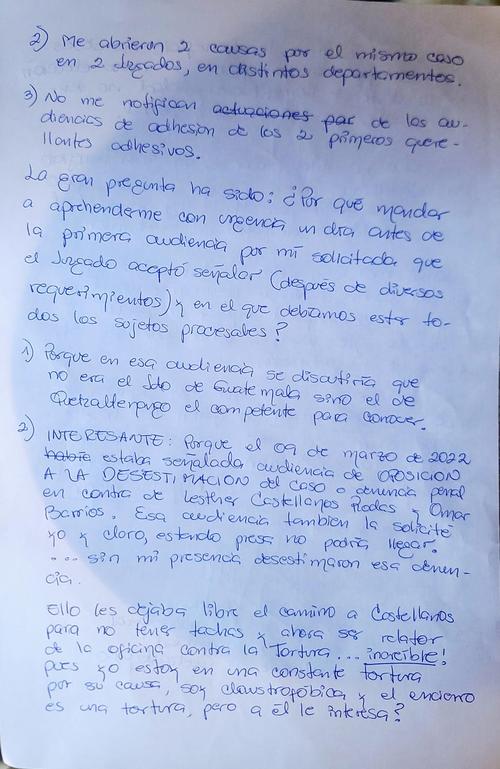 2) Me abrieron 2 causas por el mismo caso
en 2 Juzgados, en distintos departamentos.
3) No me notifican actuaciones par de los au-
diencias de adhesion de los 2 primeros quere-
llantes adhesivos.
La gran pregunta ha sido: ¿Por qué mandar
a aprehenderme con urgencia un dia antes de
la primera audiencia por mi solicitada que
el Juzgado aceptó señalar (después de diversos
requerimientos) y en el que debiamos estar to-
dos los sujetos procesales?
1) Porque en esa audiencia se discutiría que
no era el Jdo de Guatemala sino el de
Quetzaltenango el competente para conocer.
2) INTERESANTE: Porque el 09 de marzo de 2022
había estaba señalada audiencia de OPOSICION
A LA DESESTIMACION del caso o denuncia penal
en contra de Lesther Castellanos Rodas y Omar
Barrios. Esa audiencia tambien la solicité
yo y claro, estando presa no podría llegar.
... sin mi presencia desestimaron esa denun-
cia.
Ello les dejaba libre el camino a Castellanos
para no tener tachas y ahora ser relator
de la oficina contra la Tortura... increíble!
pues yo estoy en una constante tortura
por su causa, soy claustrofóbica y el encierro
es una tortura, pero a él le interesa?